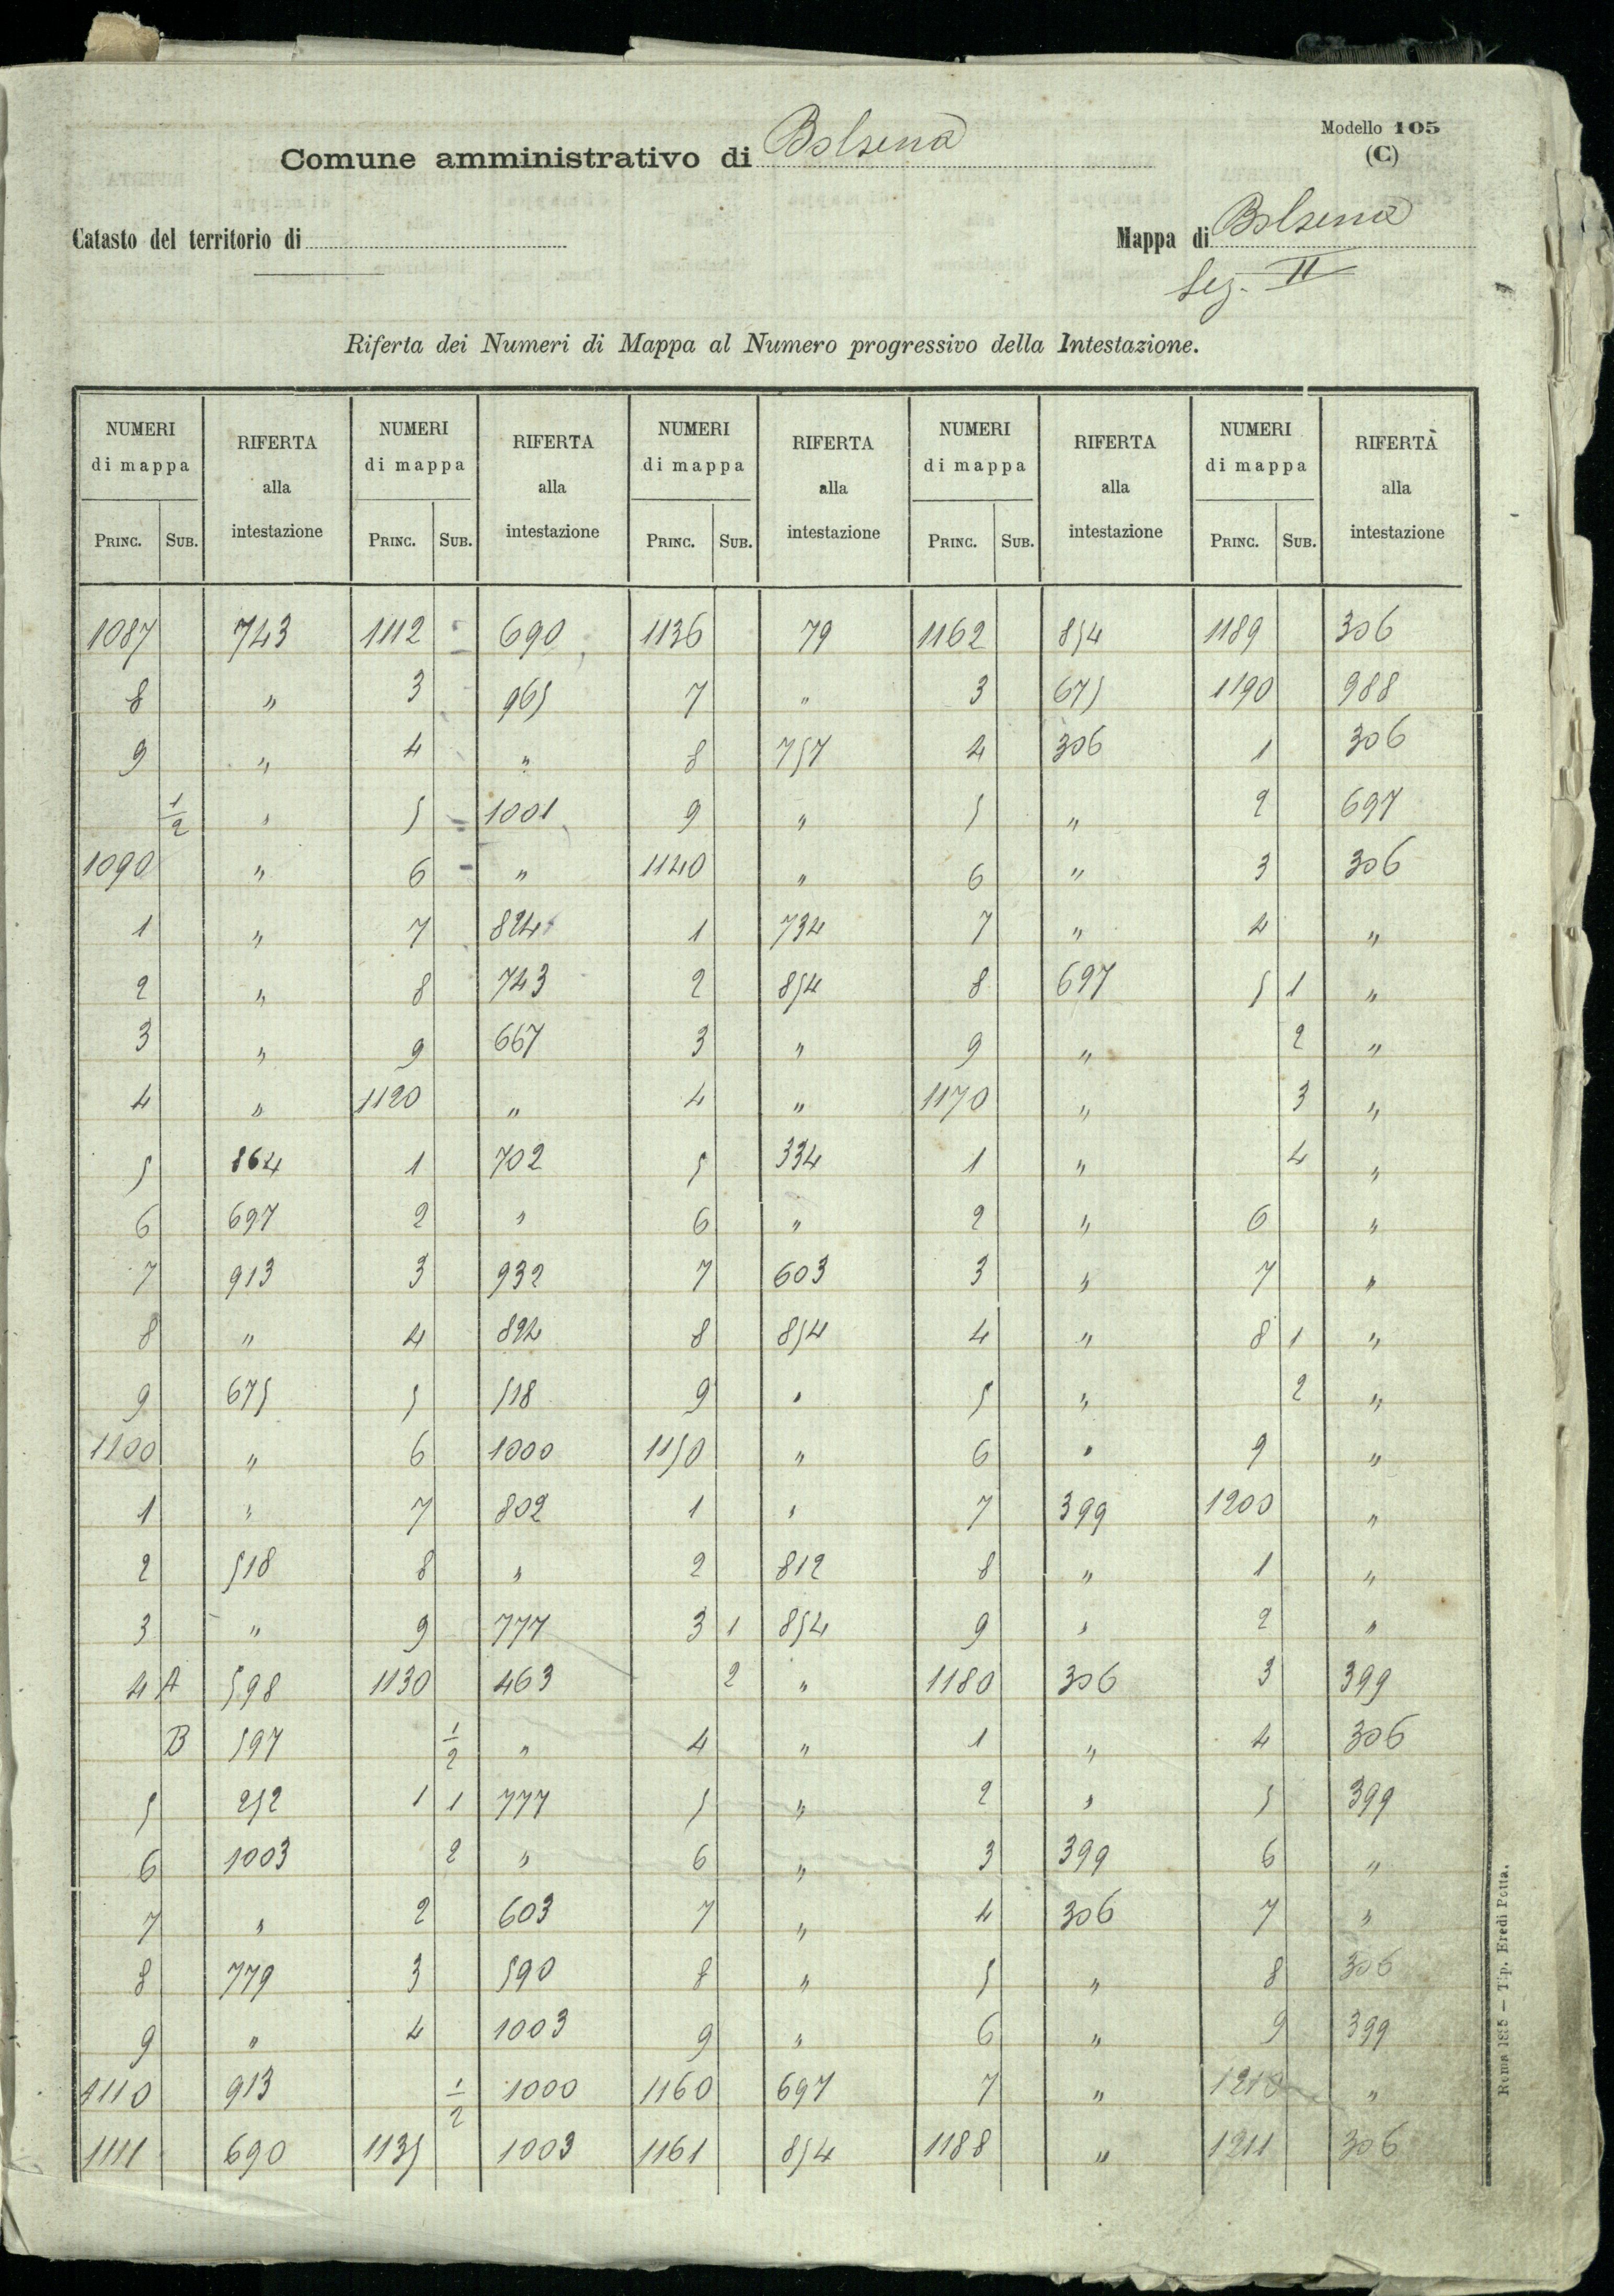 Modello 105
(C)
Comune amministrativo di Bolsena
Catasto del territorio di
Mappa di Bolsena
Sez. II
Riferta dei Numeri di Mappa al Numero progressivo della Intestazione.
NUMERI di mappa RIFERTA alla intestazione NUMERI di mappa RIFERTA alla intestazione NUMERI di mappa RIFERTA alla intestazione NUMERI di mappa RIFERTA alla intestazione NUMERI di mappa RIFERTÀ alla intestazione
PRINC. SUB. PRINC. SUB. PRINC. SUB. PRINC. SUB. PRINC. SUB.
1087 743 1112 690 1136 79 1162 854 1189 306
8 " 3 965 7 " 3 675 1190 988
9 " 4 " 8 757 4 306 1 306
1/2 " 5 1001 9 " 5 " 2 697
1090 " 6 " 1140 " 6 " 3 306
1 " 7 824 1 734 7 " 4 "
2 " 8 743 2 854 8 697 5 1 "
3 " 9 667 3 " 9 " 2 "
4 " 1120 " 4 " 1170 " 3 "
5 864 1 702 5 334 1 " 4 "
6 697 2 " 6 " 2 " 6 "
7 913 3 932 7 603 3 " 7 "
8 " 4 824 8 854 4 " 8 1 "
9 675 5 518 9 " 5 " 2 "
1100 " 6 1000 1150 " 6 " 9 "
1 " 7 802 1 " 7 399 1200 "
2 518 8 " 2 812 8 " 1 "
3 " 9 777 3 1 854 9 " 2 "
4 A 598 1130 463 2 " 1180 306 3 399
B 597 1/2 " 4 " 1 " 4 306
5 252 1 1 777 5 " 2 " 5 399
6 1003 2 " 6 " 3 399 6 "
7 " 2 603 7 " 4 306 7 "
8 779 3 590 8 " 5 " 8 306
9 " 4 1003 9 " 6 " 9 399
1110 913 1/2 1000 1160 697 7 " 1210 "
1111 690 1135 1003 1161 854 1188 " 1211 306
Roma 1885 — Tip. Eredi Botta.